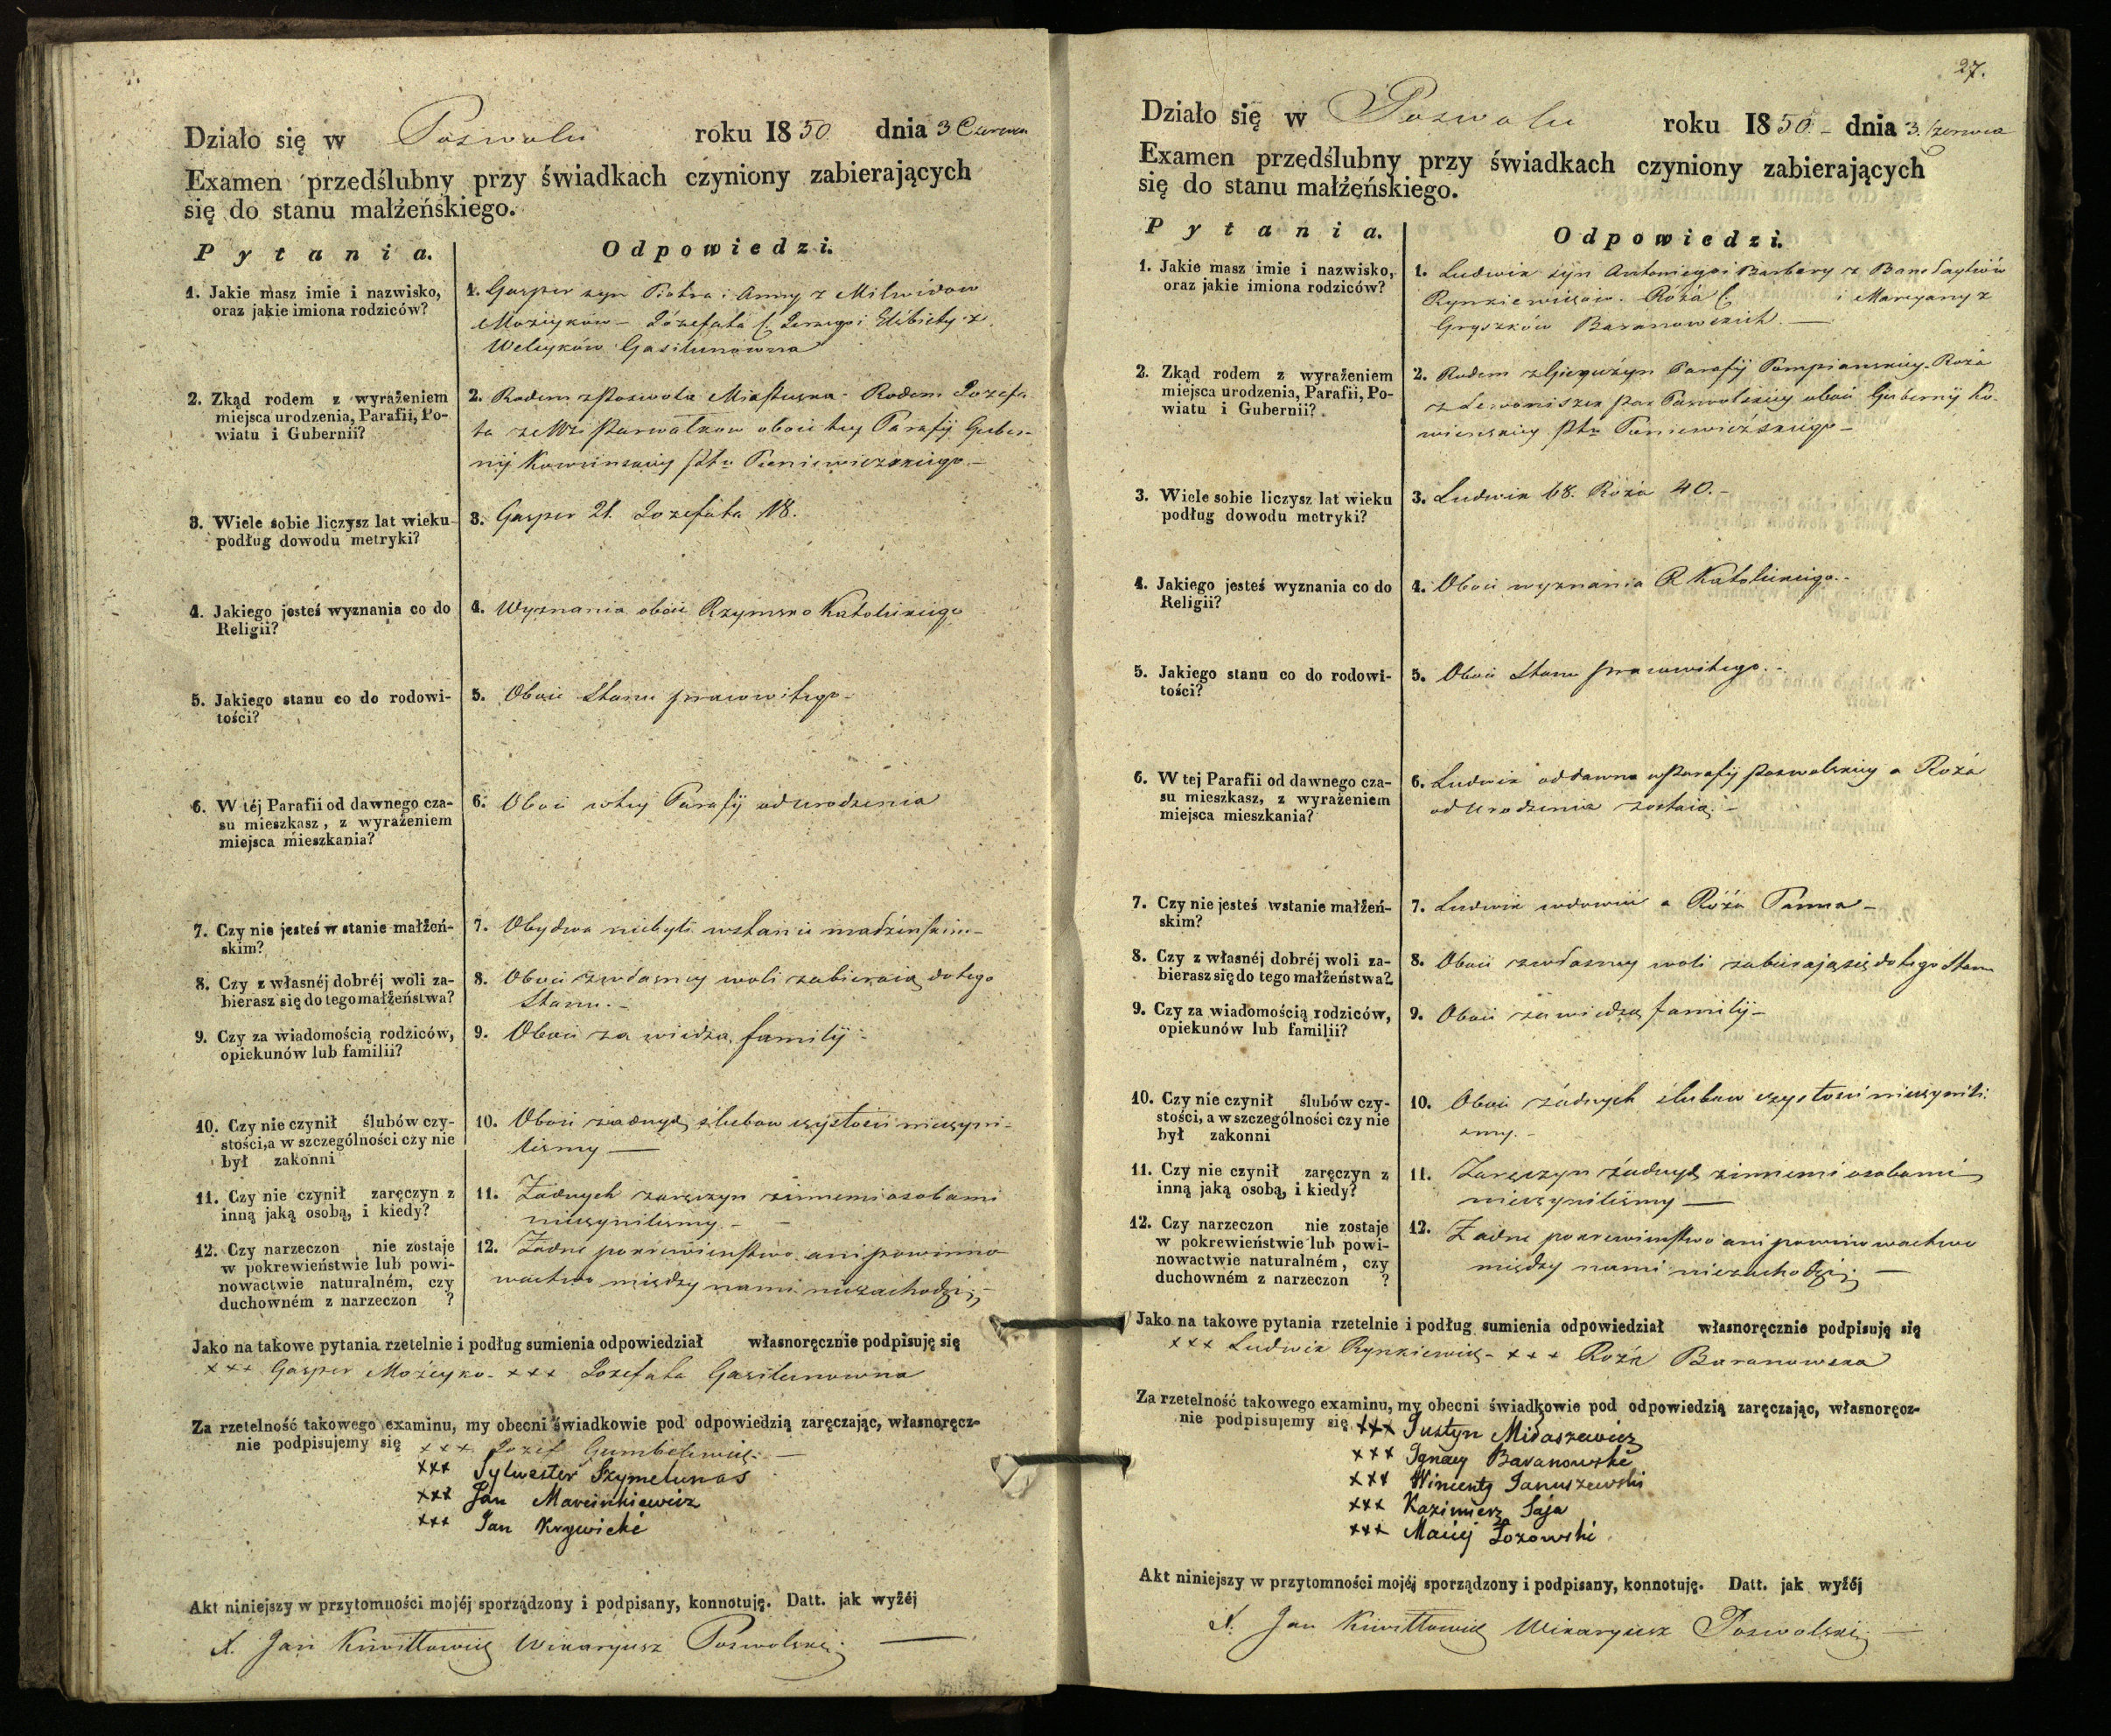 Działo się w Poswolu roku 1850 dnia 3 Czerwca
Examen przedślubny przy świadkach czyniony zabierających
się do stanu małżeńskiego.
Pytania.
Odpowiedzi.
1. Jakie masz imie i nazwisko,
oraz jakie imiona rodziców?
1. Gasper syn Piotra i Anny z Milwidow
Możeyków – Józefata C. Jerzego i Elżbiety z
Welżyków Gasiunowna
2. Zkąd rodem z wyrażeniem
miejsca urodzenia, Parafii, Po-
wiatu i Gubernii?
2. Rodem z Poswola Miasteczka. Rodem Jozefa
ta ze Wsi oboie tey Parafij Guber-
nij Kowienskiey Ptu Poniewiezskiego –
3. Wiele sobie liczysz lat wieku
podług dowodu metryki?
3. Gasper 21. Jozefata 18.
4. Jakiego jesteś wyznania co do
Religii?
4. Wyznania oboie Rzymsko Katolickiego
5. Jakiego stanu co do rodowi-
tości?
5. Oboie Stanu pracowitego –
6. W téj Parafii od dawnego cza-
su mieszkasz, z wyrażeniem
miejsca mieszkania?
6. Oboie w tey Parafij od urodzenia
7. Czy nie jesteś w stanie małżeń-
skim?
7. Obydwa niebyli w stanie
8. Czy z własnéj dobréj woli za-
bierasz się do tego małżeństwa?
8. Oboie z własney woli zabieraią do tego
Stanu. –
9. Czy za wiadomością rodziców,
opiekunów lub familii?
9. Oboie za wiedzą familij –
10. Czy nie czynił ślubów czy-
stości, a w szczególności czy nie
był zakonni
10. Oboie żadnych slubow czystości nieczyni-
lismy —
11. Czy nie czynił zaręczyn z
inną jaką osobą, i kiedy?
11. Żadnych zaręczyn z innemi osobami
nieczynilismy – –
12. Czy narzeczon nie zostaje
w pokrewieństwie lub powi-
nowactwie naturalném, czy
duchowném z narzeczon ?
12. Żadne pokrewienstwo ani powino-
wactwo między nami niezachodzi –
Jako na takowe pytania rzetelnie i podług sumienia odpowiedział własnoręcznie podpisuję się
××× Gasper Możeyko – ××× Jozefata Gasiunowna
Za rzetelność takowego examinu, my obecni świadkowie pod odpowiedzią zaręczając, własnoręcz-
nie podpisujemy się ××× Jozef Gumbelewicz –
××× Sylwester Szymelunas
××× Jan Marcinkiewicz
××× Jan Krywicki
Akt niniejszy w przytomności mojéj sporządzony i podpisany, konnotuję. Datt. jak wyżéj
X. Jan Kiwiłłowicz Wikaryusz Poswolski —
27.
Działo się w Poswolu roku 1850 – dnia 3. Czerwca
Examen przedślubny przy świadkach czyniony zabierających
się do stanu małżeńskiego.
Pytania.
Odpowiedzi.
1. Jakie masz imie i nazwisko,
oraz jakie imiona rodziców?
1. Ludwik syn Antoniego i Barbary z
Rynkiewiczow. Róża C. i Maryany z
Gryszków Baranowskich. —
2. Zkąd rodem z wyrażeniem
miejsca urodzenia, Parafii, Po-
wiatu i Gubernii?
2. Rodem z Parafij Pompianskiey. Roża
z Lewaniszek Par Poswolskiey oboie Gubernij Ko-
wienskiey Ptu Poniewiezskiego –
3. Wiele sobie liczysz lat wieku
podług dowodu metryki?
3. Ludwik 68. Róża 40. –
4. Jakiego jesteś wyznania co do
Religii?
4. Oboie wyznania R Katolickiego –
5. Jakiego stanu co do rodowi-
tości?
5. Oboie Stanu pracowitego –
6. W tej Parafii od dawnego cza-
su mieszkasz, z wyrażeniem
miejsca mieszkania?
6. Ludwik od dawna w Parafij Poswolskiey a Roża
od Urodzenia zostaią –
7. Czy nie jesteś wstanie małżeń-
skim?
7. Ludwik wdowiec a Róża Panna –
8. Czy z własnéj dobréj woli za-
bierasz się do tego małżeństwa?
8. Oboie z własney woli zabierają się do tego Stanu
9. Czy za wiadomością rodziców,
opiekunów lub familii?
9. Oboie za wiedzą familij –
10. Czy nie czynił ślubów czy-
stości, a w szczególności czy nie
był zakonni
10. Oboie żadnych slubow czystości nieczynili
smy. –
11. Czy nie czynił zaręczyn z
inną jaką osobą, i kiedy?
11. Zaręczyn żadnych z innemi osobami
nieczynilismy —
12. Czy narzeczon nie zostaje
w pokrewieństwie lub powi-
nowactwie naturalném, czy
duchowném z narzeczon ?
12. Żadne pokrewienstwo ani powinowactwo
między nami niezachodzi —
Jako na takowe pytania rzetelnie i podług sumienia odpowiedział własnoręcznie podpisuję się
××× Ludwik Rynkiewicz – ××× Roża Baranowska
Za rzetelność takowego examinu, my obecni świadkowie pod odpowiedzią zaręczając, własnoręcz-
nie podpisujemy się ××× Justyn Midaszewicz
××× Ignacy Baranowski
××× Wincenty Januszewski
××× Kazimierz Saja
××× Maciej Łozowski
Akt niniejszy w przytomności mojéj sporządzony i podpisany, konnotuję. Datt. jak wyżéj
X. Jan Kiwiłłowicz Wikaryusz Poswolski —